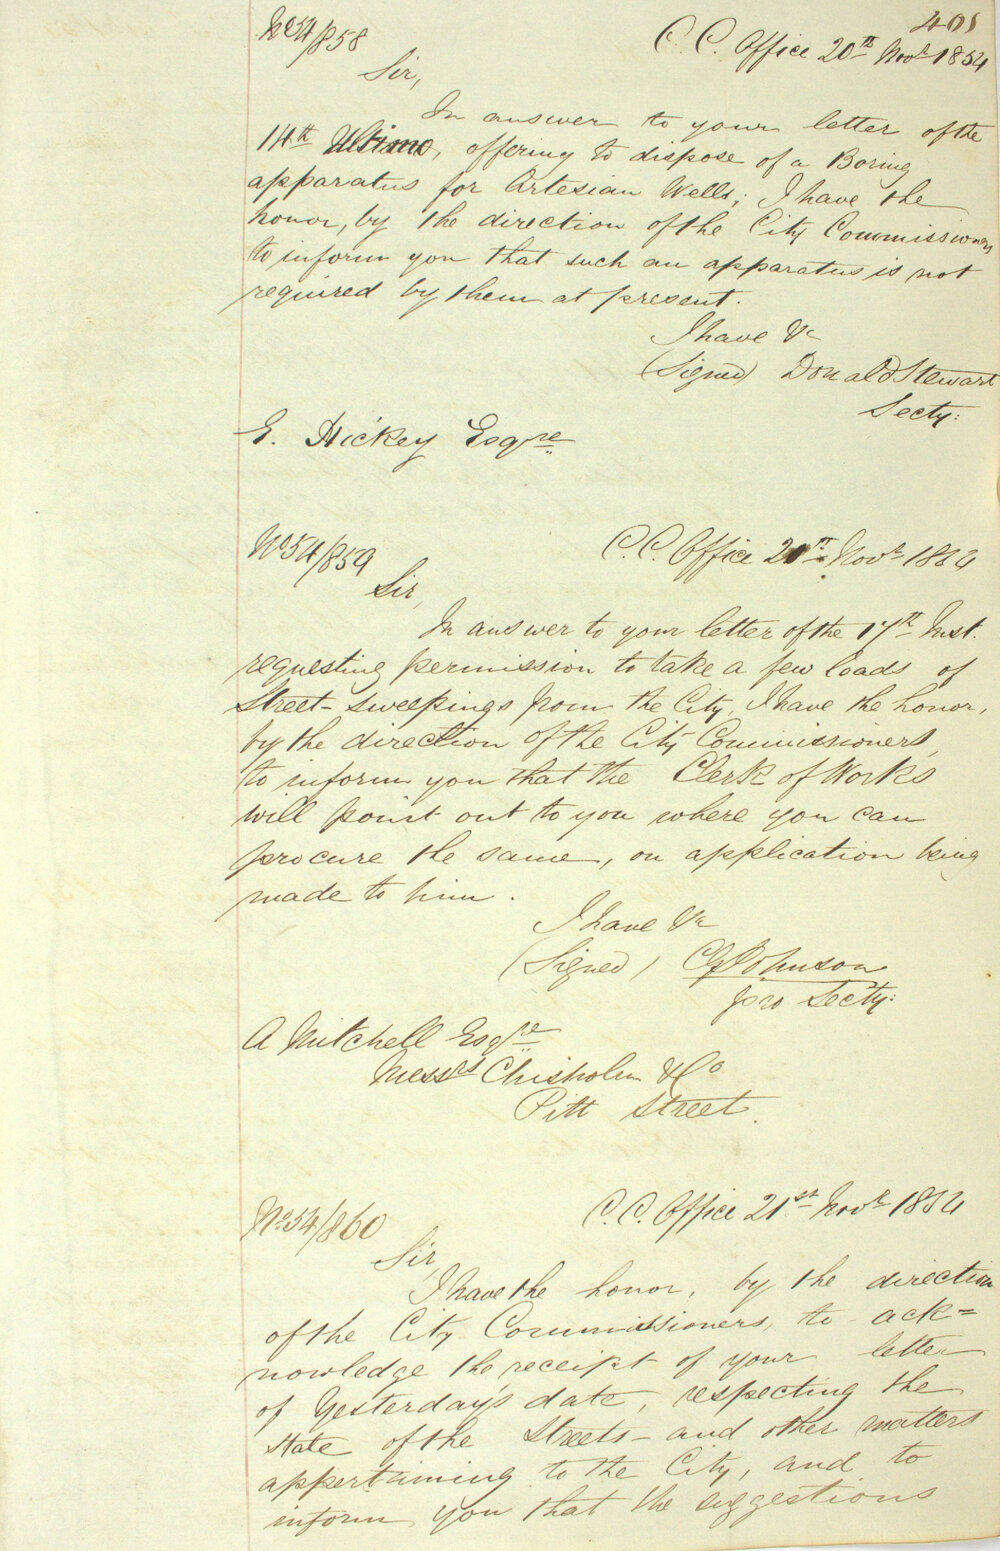 401
No 54/858
C. C. Office 20th Novr 1854
Sir,
In answer to your letter of the
14th Ultimo, offering to dispose of a Boring
apparatus for Artesian Wells; I have the
honor, by the direction of the City Commissioners
to inform you that such an apparatus is not
required by them at present.
I have &c
(Signed) Donald Stewart
Secty:
E. Hickey Esqre
No 54/859
C. C. Office 21st Novr 1854
Sir,
In answer to your letter of the 17th Inst.
requesting permission to take a few loads of
Street-sweepings from the City, I have the honor,
by the direction of the City Commissioners,
to inform you that the Clerk of Works
will point out to you where you can
procure the same, on application being
made to him.
I have &c
(Signed) Johnson
pro Secty:
A Mitchell Esqre
Messrs Chisholm & Co
Pitt Street.
No 54/860
C. C. Office 21st Novr 1854
Sir,
I have the honor, by the direction
of the City Commissioners, to ack=
nowledge the receipt of your letter
of Yesterday's date, respecting the
state of the Streets - and other matters
appertaining to the City, and to
inform you that the suggestions